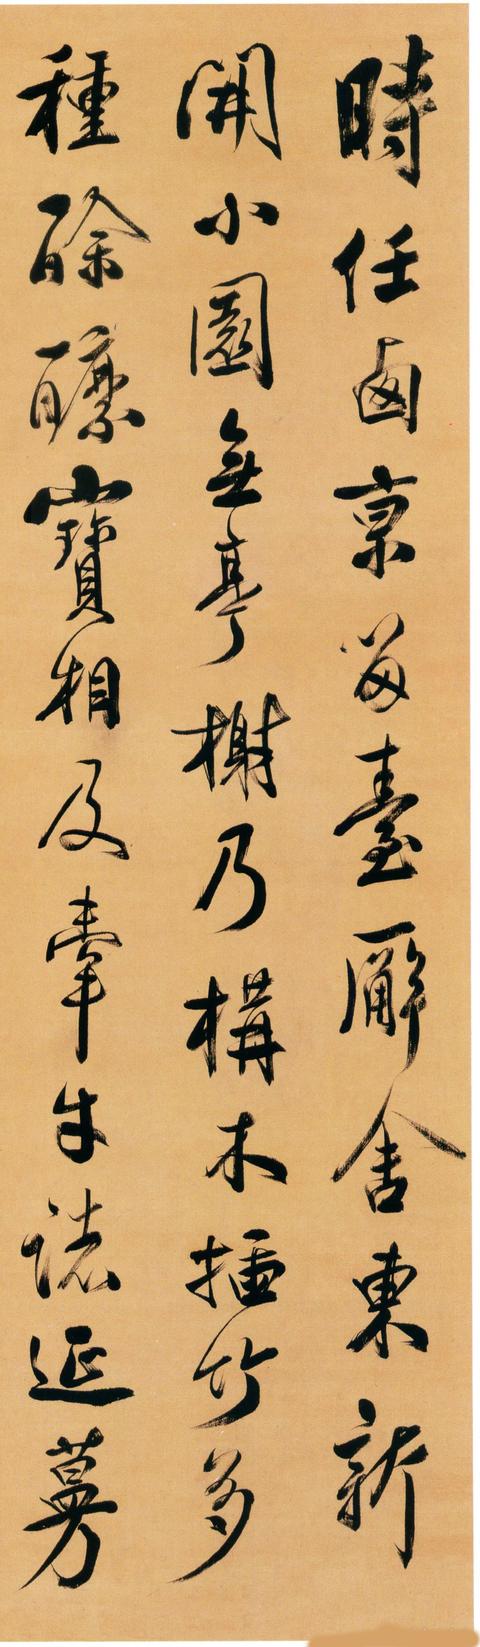 時任卥京留臺廨舍東新
開小園無亭榭乃構木插竹多
種酴醿寶相及牽牛諸延蔓